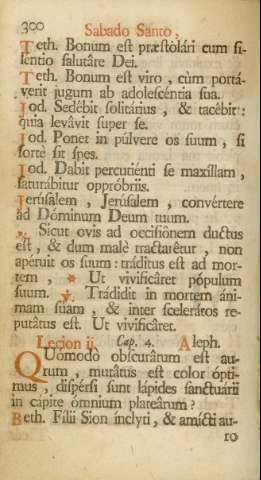 300
Sabado Santo,
Teth. Bonum est præstolári cum si-
lentio salutâre Dei.
Teth. Bonum est viro, cùm portá-
verit jugum ab adolescéntia sua.
Jod. Sedébit solitárius, & tacébit:
quia levâvit super se.
Jod. Ponet in púlvere os suum, si
fortè sit spes.
Jod. Dabit percutiénti se maxíllam,
saturábitur oppróbriis.
Jerúsalem, Jerúsalem, convértere
ad Dóminum Deum tuum.
℟. Sicut ovis ad occisiônem ductus
est, & dum malè tractarêtur, non
apéruit os suum: tráditus est ad mor-
tem, * Ut vivificâret pópulum
suum. ℣. Trádidit in mortem áni-
mam suam, & inter scelerátos re-
putâtus est. Ut vivificâret.
Leçion ij. Cap. 4. Aleph.
QUómodo obscurâtum est au-
rum, mutâtus est color ópti-
mus, dispérsi sunt lápides sanctuárii
in cápite ómnium plateârum?
Beth. Fílii Sion ínclyti, & amícti au-
ro